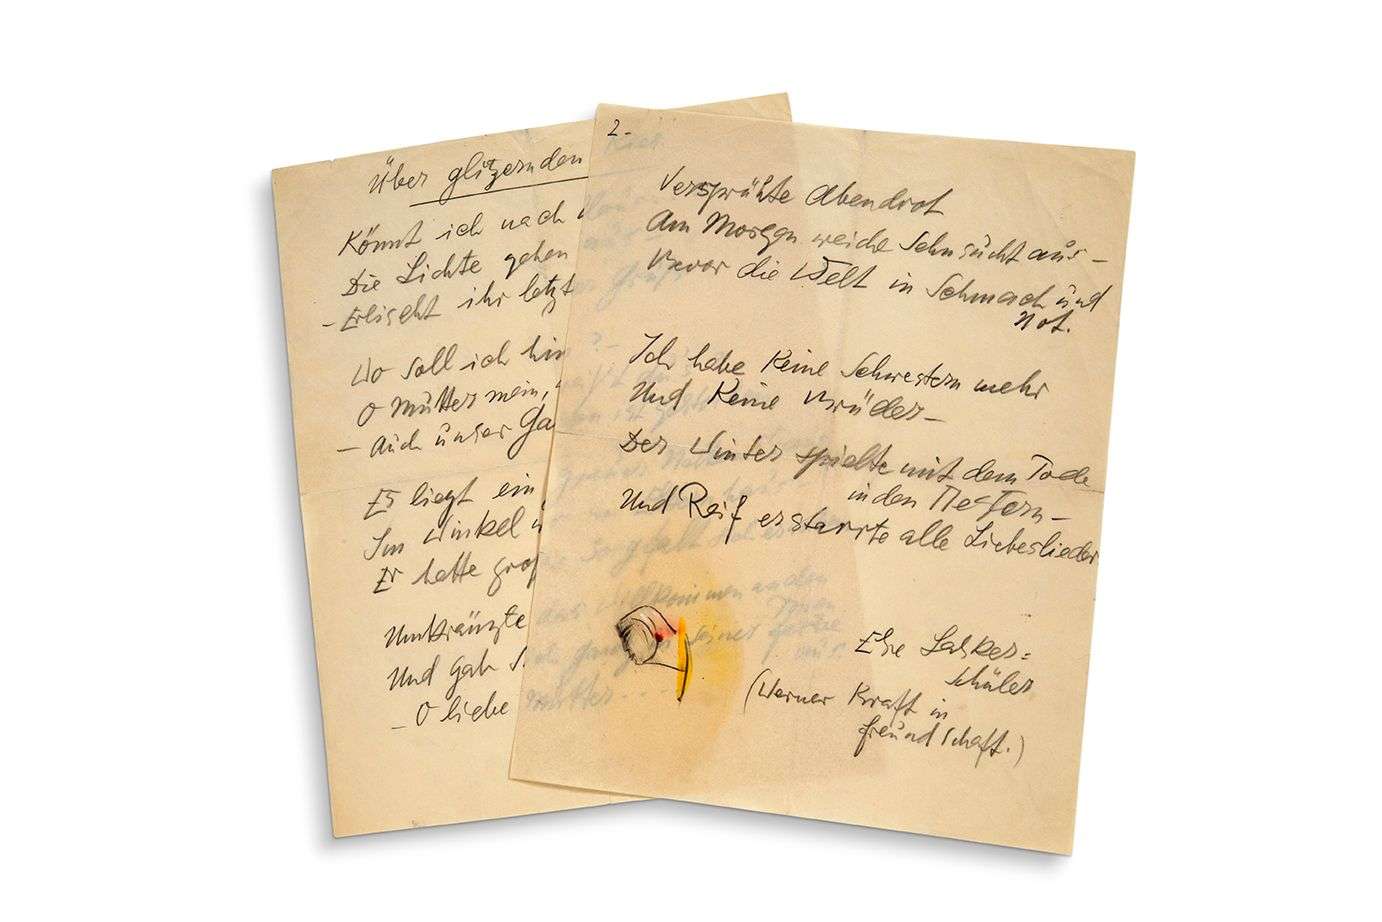 Über glitzernden Kies
Könnt ich nach
Die Lichte gehen
– Erlischt ihr letzt
Wo soll ich hin
O Mutter mein,
– Auch unser Ga
Es liegt ein
Im Winkel
Er hatte gros
Umkränzte
Und gab
– O liebe
2.–
Versprühte Abendrot
Am Morgen weiche Sehnsucht aus –
Bevor die Welt in Schmach und
Not.
Ich habe keine Schwestern mehr
Und keine Brüder –
Der Winter spielte mit dem Tode
in den Nestern –
Und Reif erstarrte alle Liebeslieder
Else Lasker=
Schüler
(Werner Kraft in
Freundschaft.)